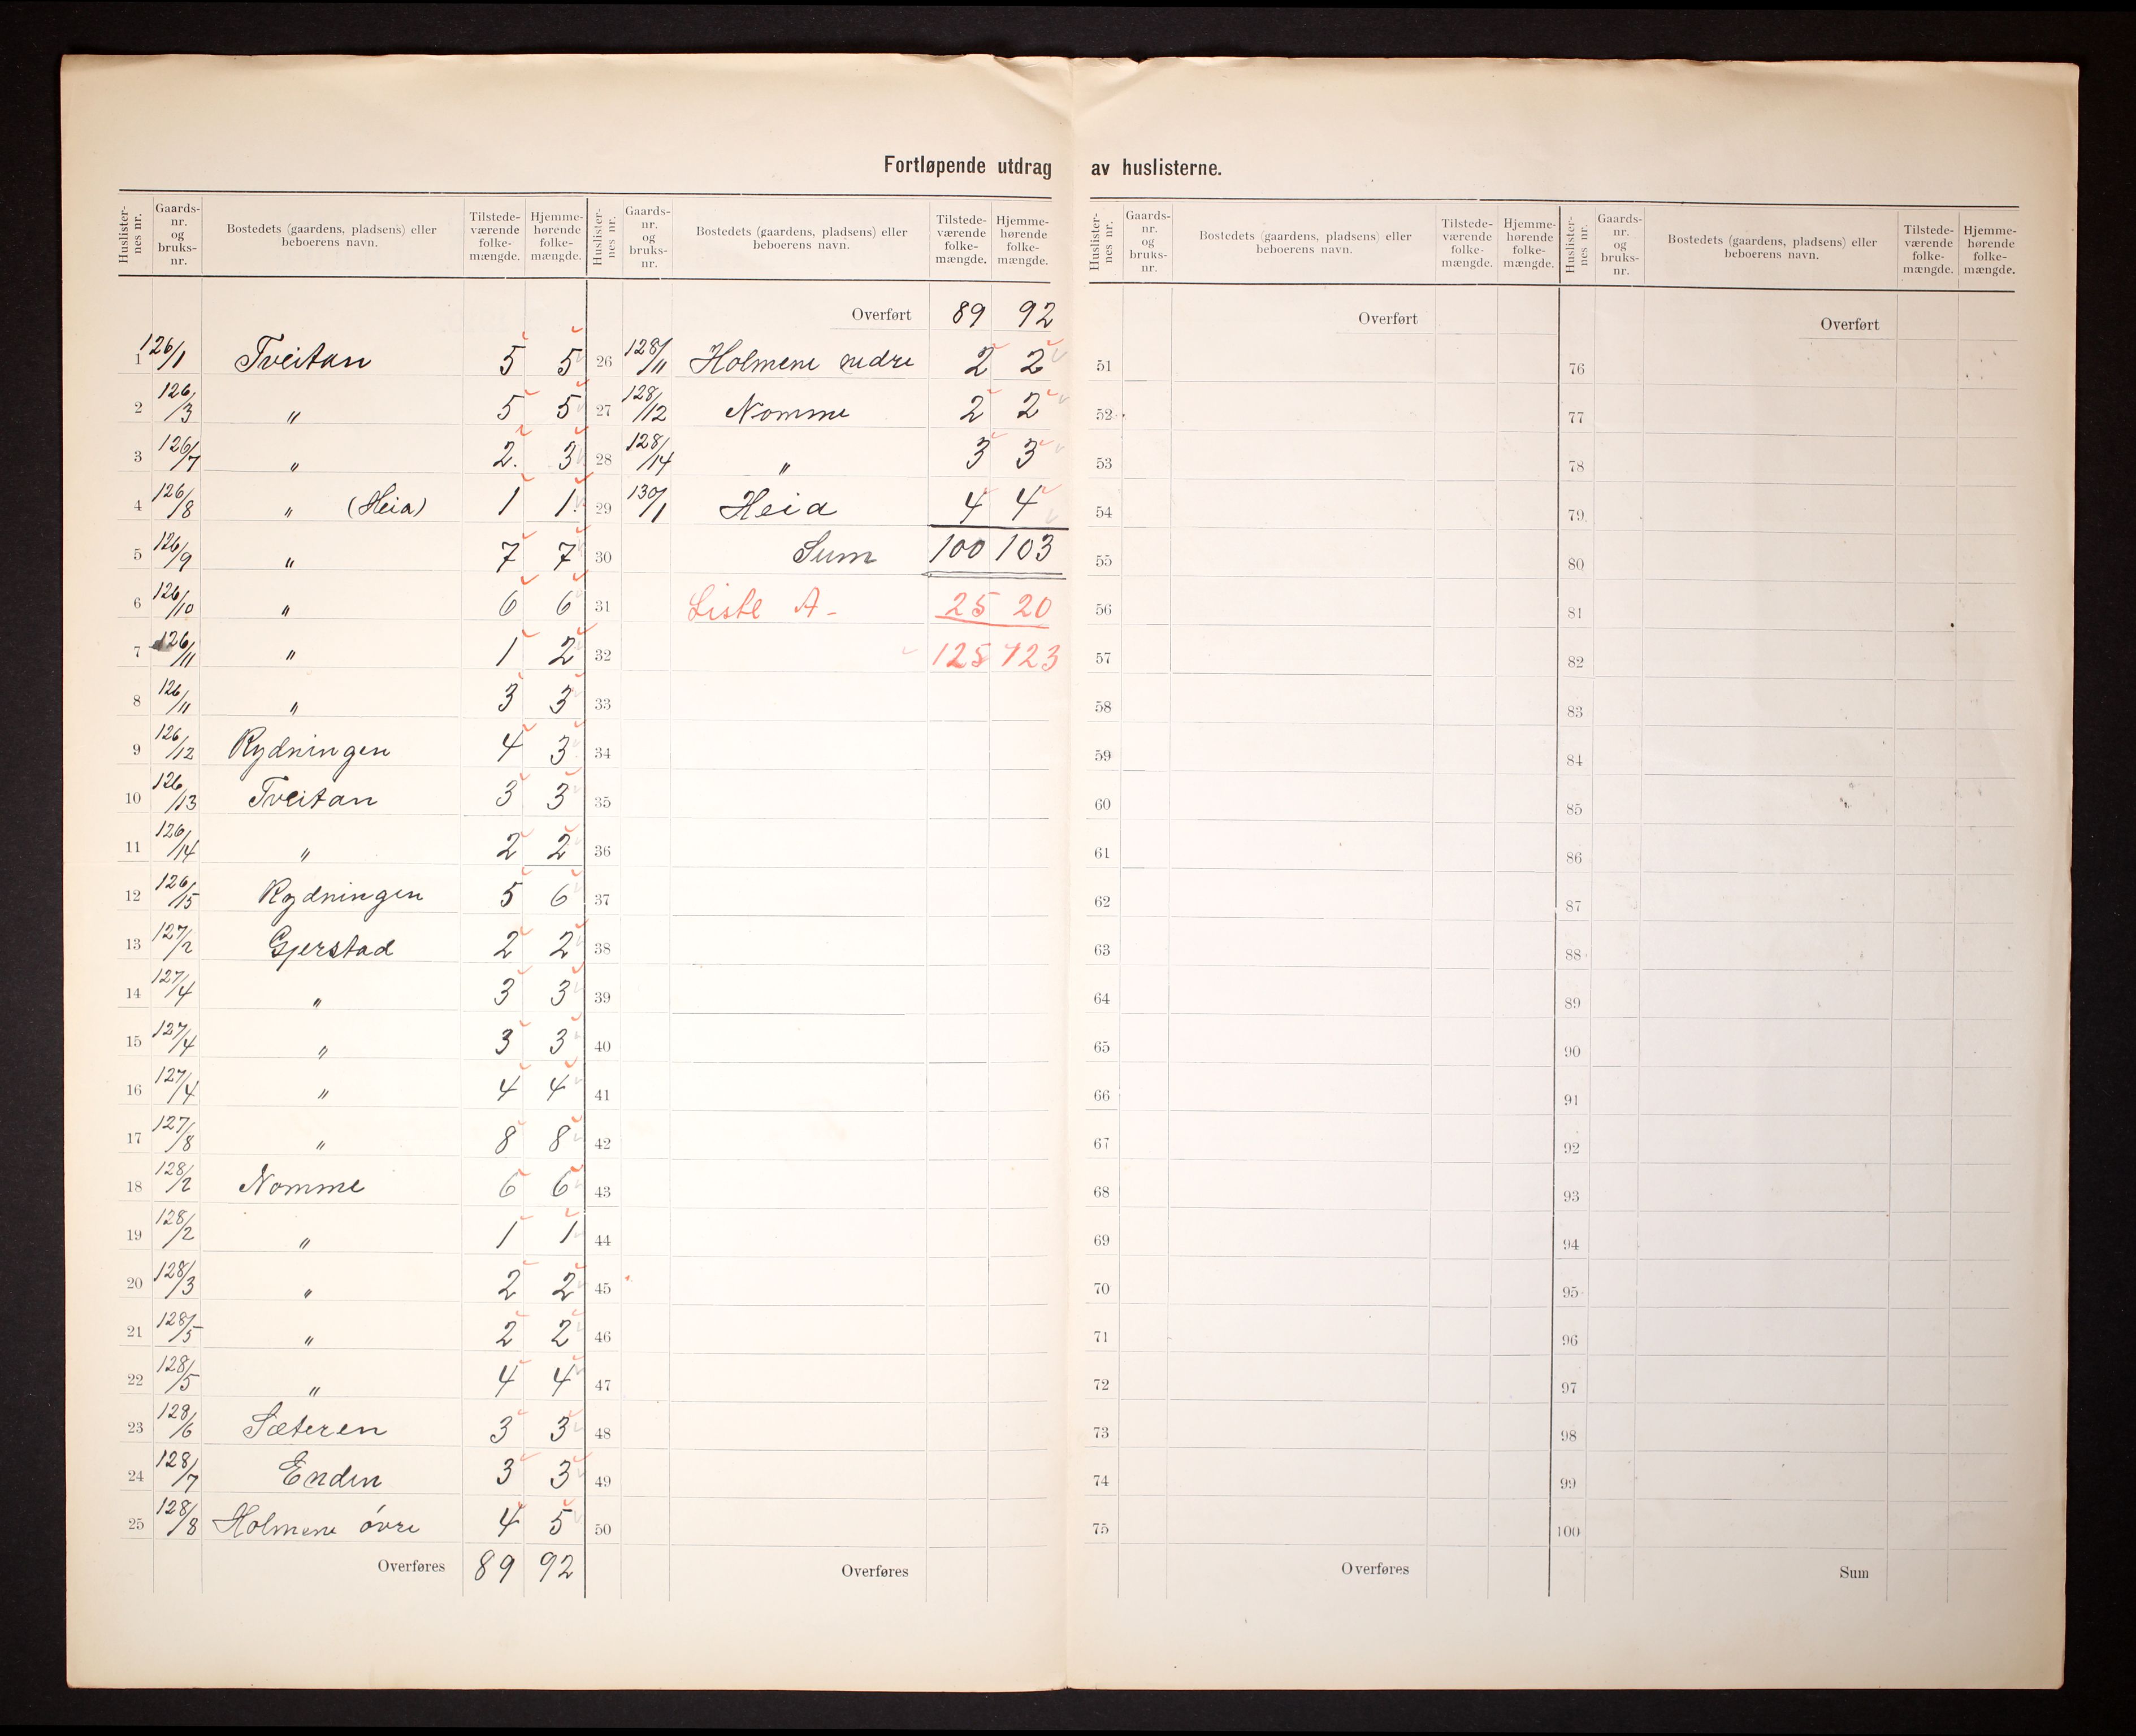 Fortløpende utdrag av huslisterne.
Huslisternes nr. Gaards-nr. og bruks-nr. Bostedets (gaardens, pladsens) eller beboerens navn. Tilstedeværende folkemængde. Hjemmehørende folkemængde. Huslisternes nr. Gaards-nr. og bruks-nr. Bostedets (gaardens, pladsens) eller beboerens navn. Tilstedeværende folkemængde. Hjemmehørende folkemængde. Huslisternes nr. Gaards-nr. og bruks-nr. Bostedets (gaardens, pladsens) eller beboerens navn. Tilstedeværende folkemængde. Hjemmehørende folkemængde. Huslisternes nr. Gaards-nr. og bruks-nr. Bostedets (gaardens, pladsens) eller beboerens navn. Tilstedeværende folkemængde. Hjemmehørende folkemængde.
Overført 89 92 Overført Overført
1 126/1 Tveitan 5 5 26 128/11 Holmene nedre 2 2 51 76
2 126/3 " 5 5 27 128/12 Nomme 2 2 52 77
3 126/7 " 2. 3 28 128/14 " 3 3 53 78
4 126/8 " (Heia) 1 1 29 130/1 Heia 4 4 54 79
5 126/9 " 7 7 30 Sum 100 103 55 80
6 126/10 " 6 6 31 Liste A- 25 20 56 81
7 126/11 " 1 2 32 125 123 57 82
8 126/11 " 3 3 33 58 83
9 126/12 Rydningen 4 3 34 59 84
10 126/13 Tveitan 3 3 35 60 85
11 126/14 " 2 2 36 61 86
12 126/15 Rydningen 5 6 37 62 87
13 127/2 Gjerstad 2 2 38 63 88
14 127/4 " 3 3 39 64 89
15 127/4 " 3 3 40 65 90
16 127/4 " 4 4 41 66 91
17 127/8 " 8 8 42 67 92
18 128/2 Nomme 6 6 43 68 93
19 128/2 " 1 1 44 69 94
20 128/3 " 2 2 45 70 95
21 128/5 " 2 2 46 71 96
22 128/5 " 4 4 47 72 97
23 128/6 Sæteren 3 3 48 73 98
24 128/7 Enden 3 3 49 74 99
25 128/8 Holmene óvre 4 5 50 75 100
Overføres 89 92 Overføres Overføres Sum